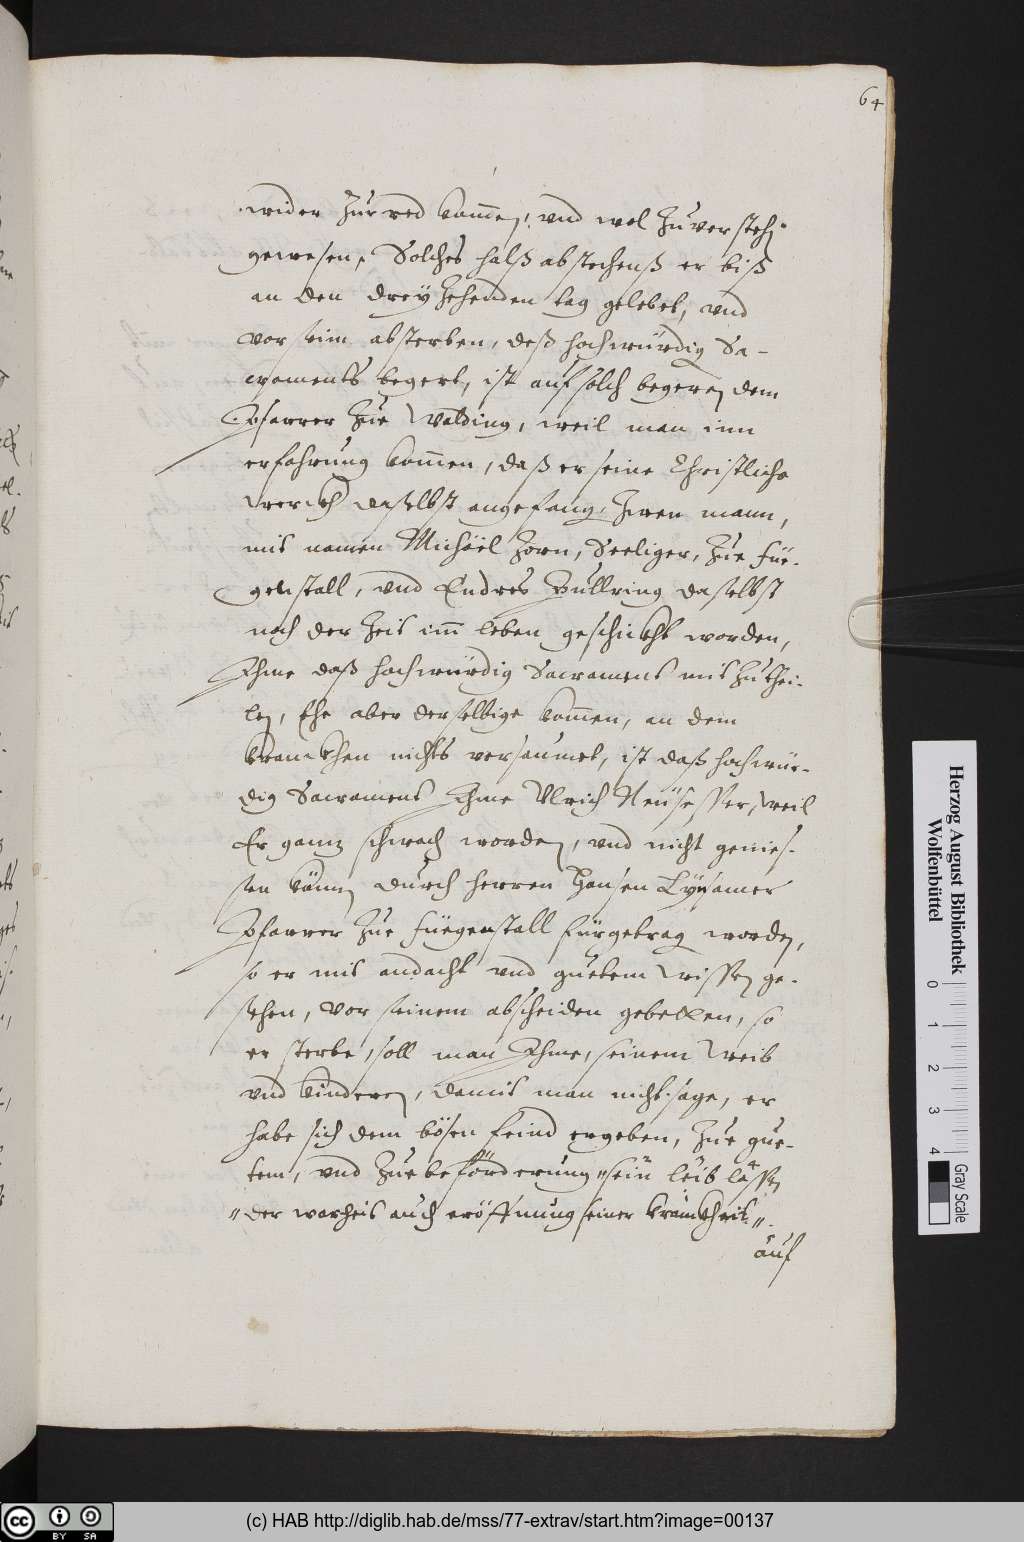 64
wider zur red kom̄en, vnd wol zuverstehen
gewesen, Solches halß abstechenß er biß
an den dreyzehenden tag gelebet, vnd
vor seim absterben, deß hochwürdig Sa-
craments begert, ist auf solch begeren dem
Pfarrer zue Walding, weil man inn
erfahrung kom̄en, daß er seine Christliche
werckh daselbst angefang, zwen mann,
mit namen Michaël Zorn, Seeliger, zue Füe-
genstall, vnd Endres Pullring daselbst
noch der zeit im̄ leben geschickht worden,
Ihme daß hochwürdig Sacrament mitzuthei-
len, Ehe aber derselbige kom̄en, an dem
kranckhen nichts versaumet, ist daß hochwür-
dig Sacrament Ihme Vlrich Neüsesser, weil
Er ganz schwach worden, vnd nicht genies-
sen könn, durch herren Hansen
Pfarrer zue Füegenstall fürgetrag worden,
so er mit andacht vnd guetem wissen ge-
sehen, vor seinem abscheiden gebetten, so
er sterbe, soll man Ihme, seinem weib
vnd kinderen, damit man nicht sage, er
habe sich dem bösen feind ergeben, zue gue-
tem, vnd zue beförderung sein leib lassen
der warheit auch eröffnung seiner kranckheit
auf
Herzog August Bibliothek
Wolfenbüttel
0 1 2 3 4
Gray Scale
cc BY SA
(c) HAB http://diglib.hab.de/mss/77-extrav/start.htm?image=00137